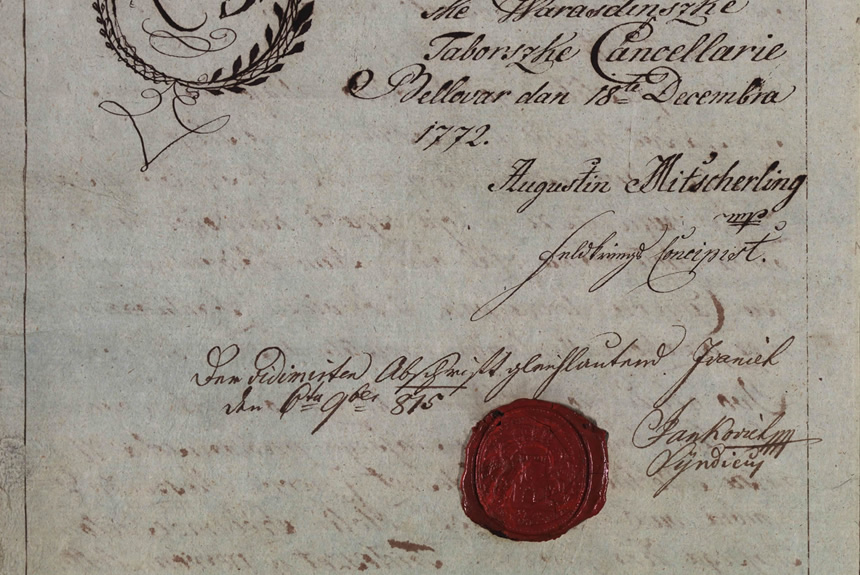 ske Warasdinszke
Taborszke Cancellarie
Bellovar dan 18te Decembra
1772.
Augustin Mitscherling
mp
Feldkriegs Concipist.
Der vidimirten Abschrift gleichlautend. Ivanich
den 6ten 9ber 815
Jankovich mp
Syndicus